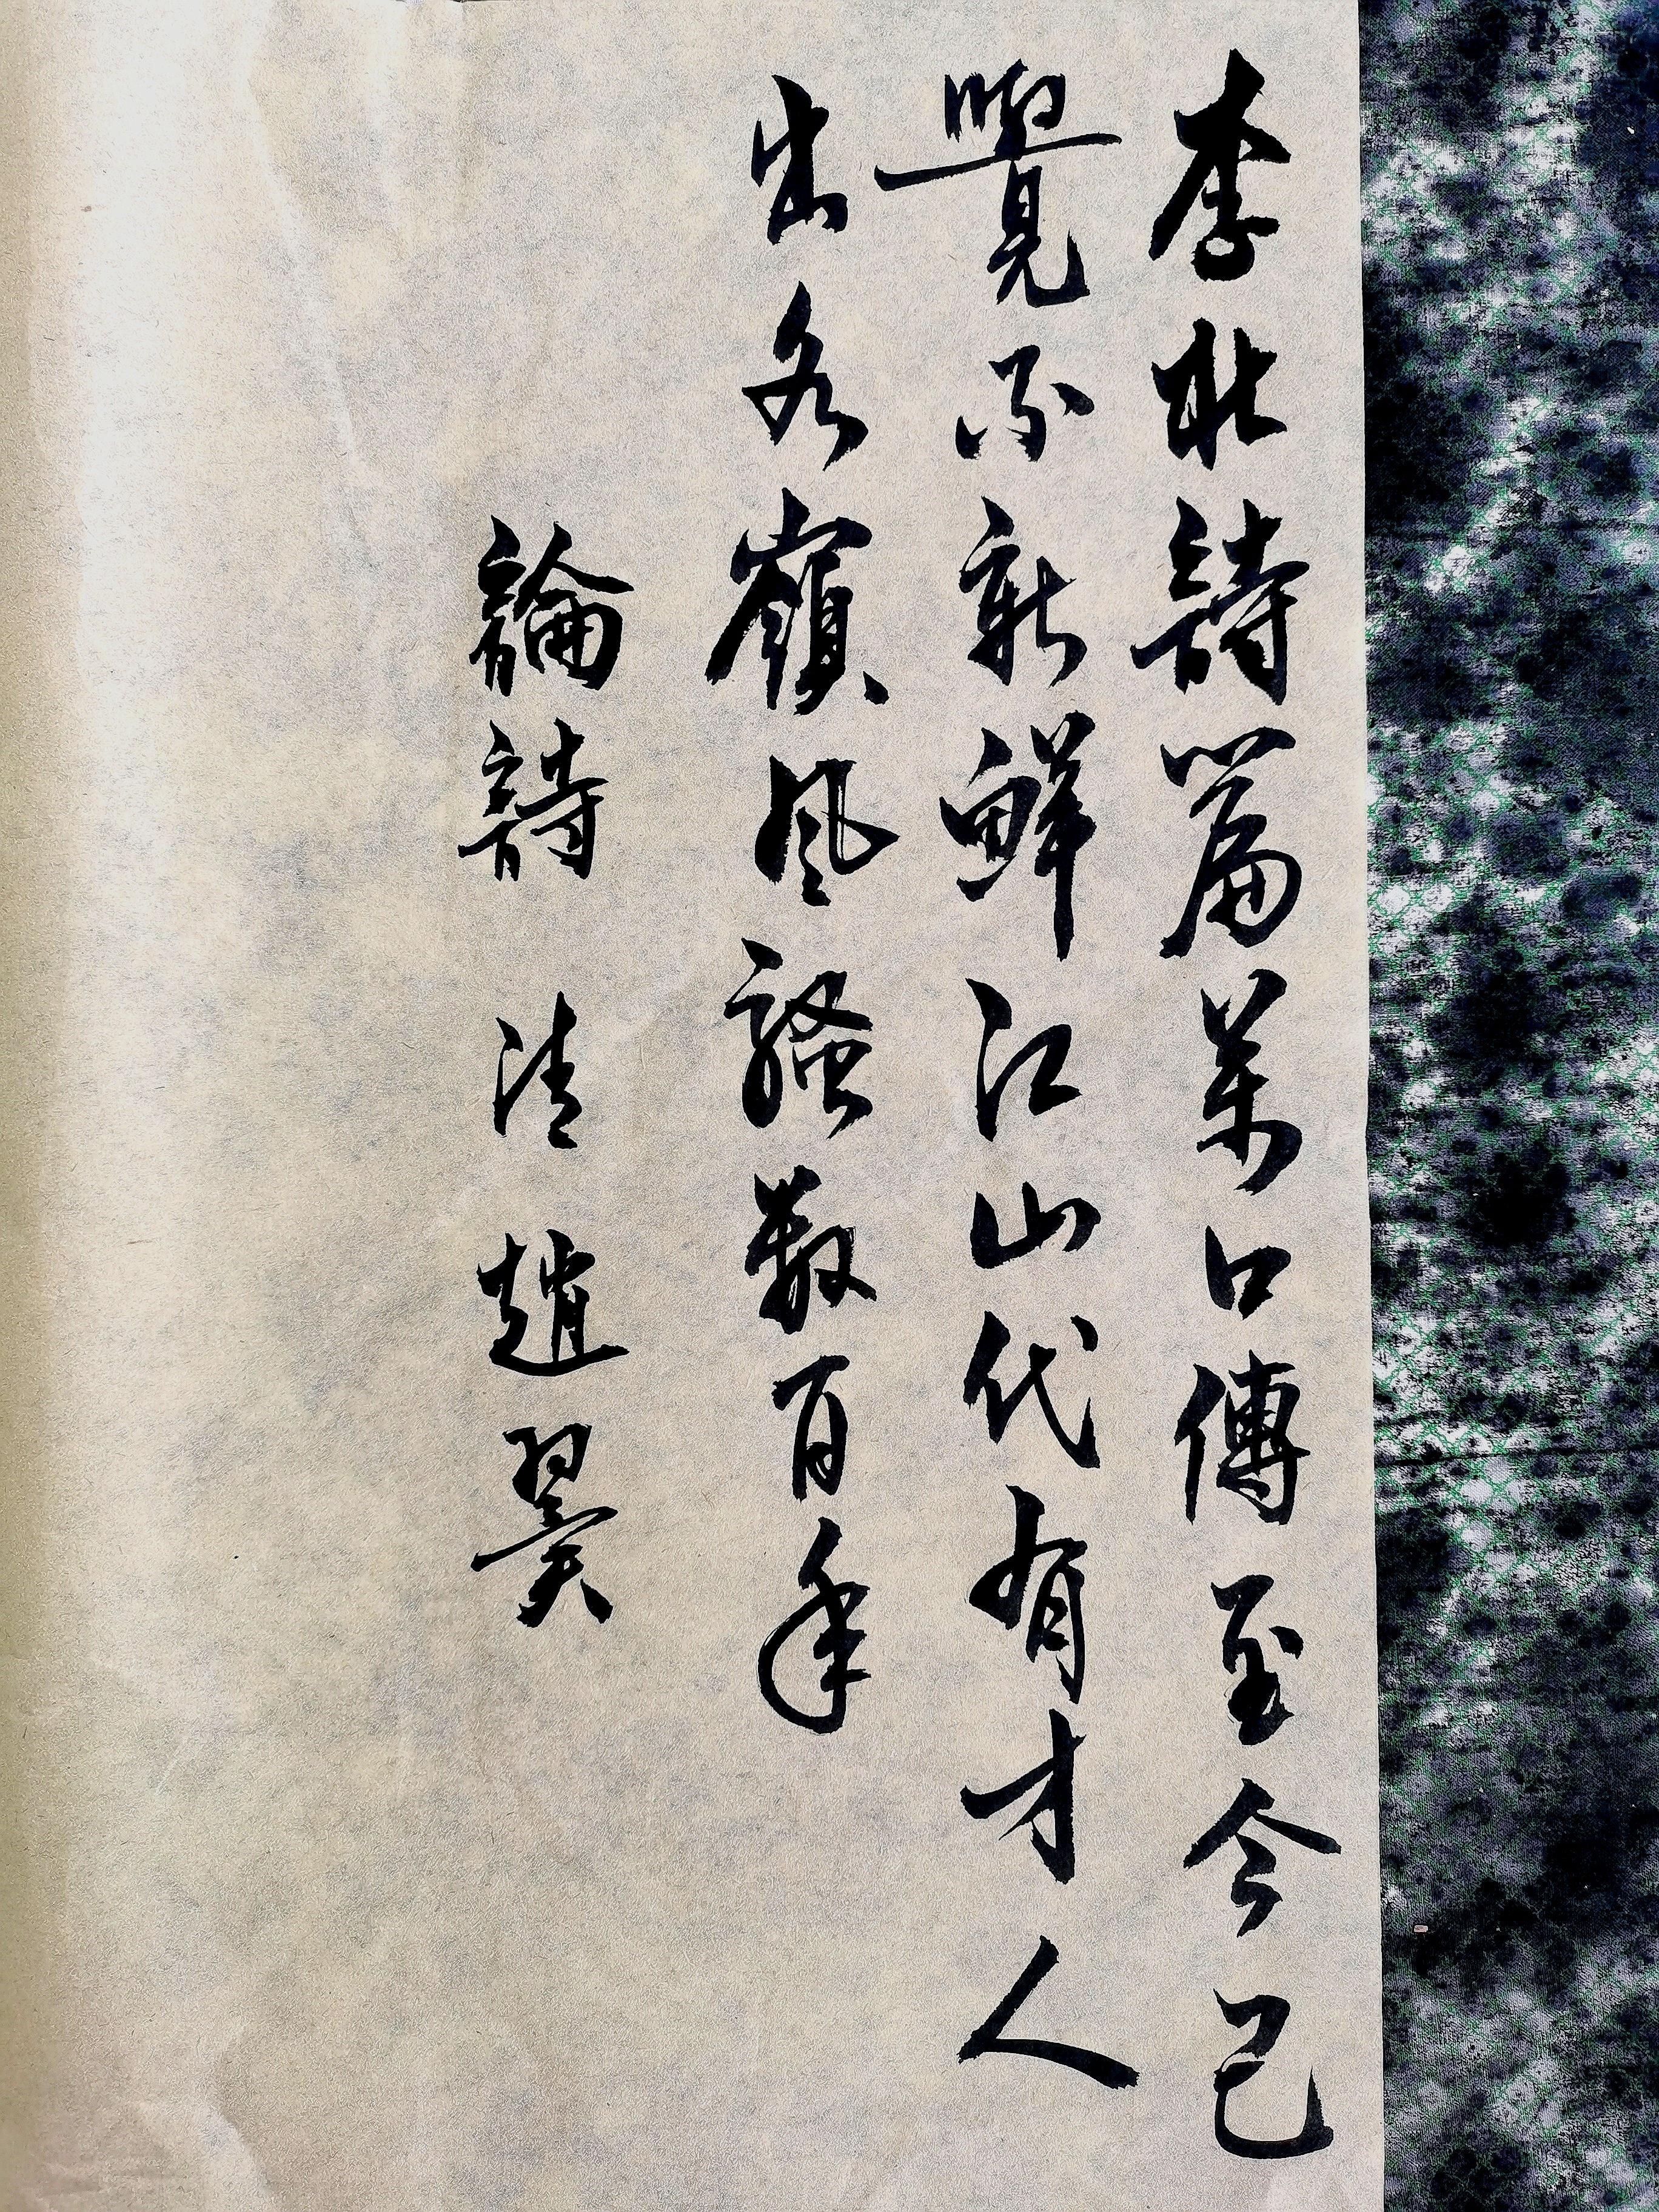 李杜詩篇萬口傳至今已
覺不新鮮江山代有才人
出各嶺風騷數百年
論詩 清 趙翼